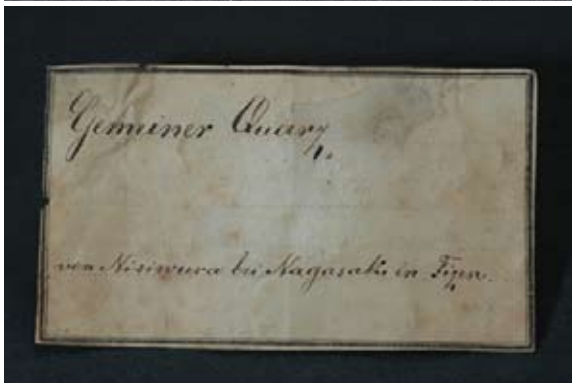 Gemeiner Quarz.
von Nisiwura bei Nagasaki in Fizen.